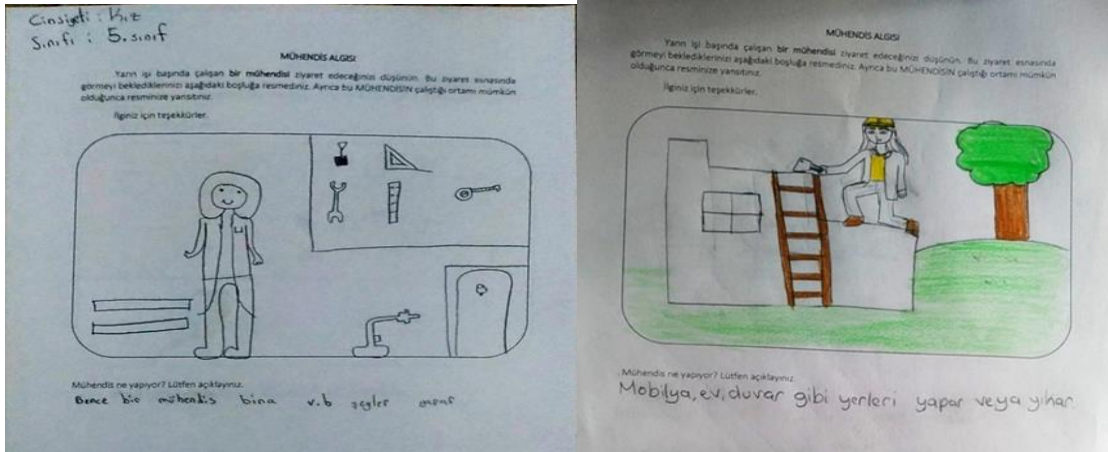 Cinsiyeti : Kız
Sınıfı : 5. sınıf
MÜHENDİS ALGISI
Yarın işi başında çalışan bir mühendisi ziyaret edeceğinizi düşünün. Bu ziyaret esnasında
görmeyi beklediklerinizi aşağıdaki boşluğa resmediniz. Ayrıca bu MÜHENDİSİN çalıştığı ortamı mümkün
olduğunca resminize yansıtınız.
İlginiz için teşekkürler.
Mühendis ne yapıyor? Lütfen açıklayınız.
Bence bir mühendis bina v.b şeyler yapar
MÜHENDİS ALGISI
Yarın işi başında çalışan bir mühendisi ziyaret edeceğinizi düşünün. Bu ziyaret esnasında
görmeyi beklediklerinizi aşağıdaki boşluğa resmediniz. Ayrıca bu MÜHENDİSİN çalıştığı ortamı mümkün
olduğunca resminize yansıtınız.
İlginiz için teşekkürler.
Mühendis ne yapıyor? Lütfen açıklayınız.
Mobilya, ev, duvar gibi yerleri yapar veya yıkar